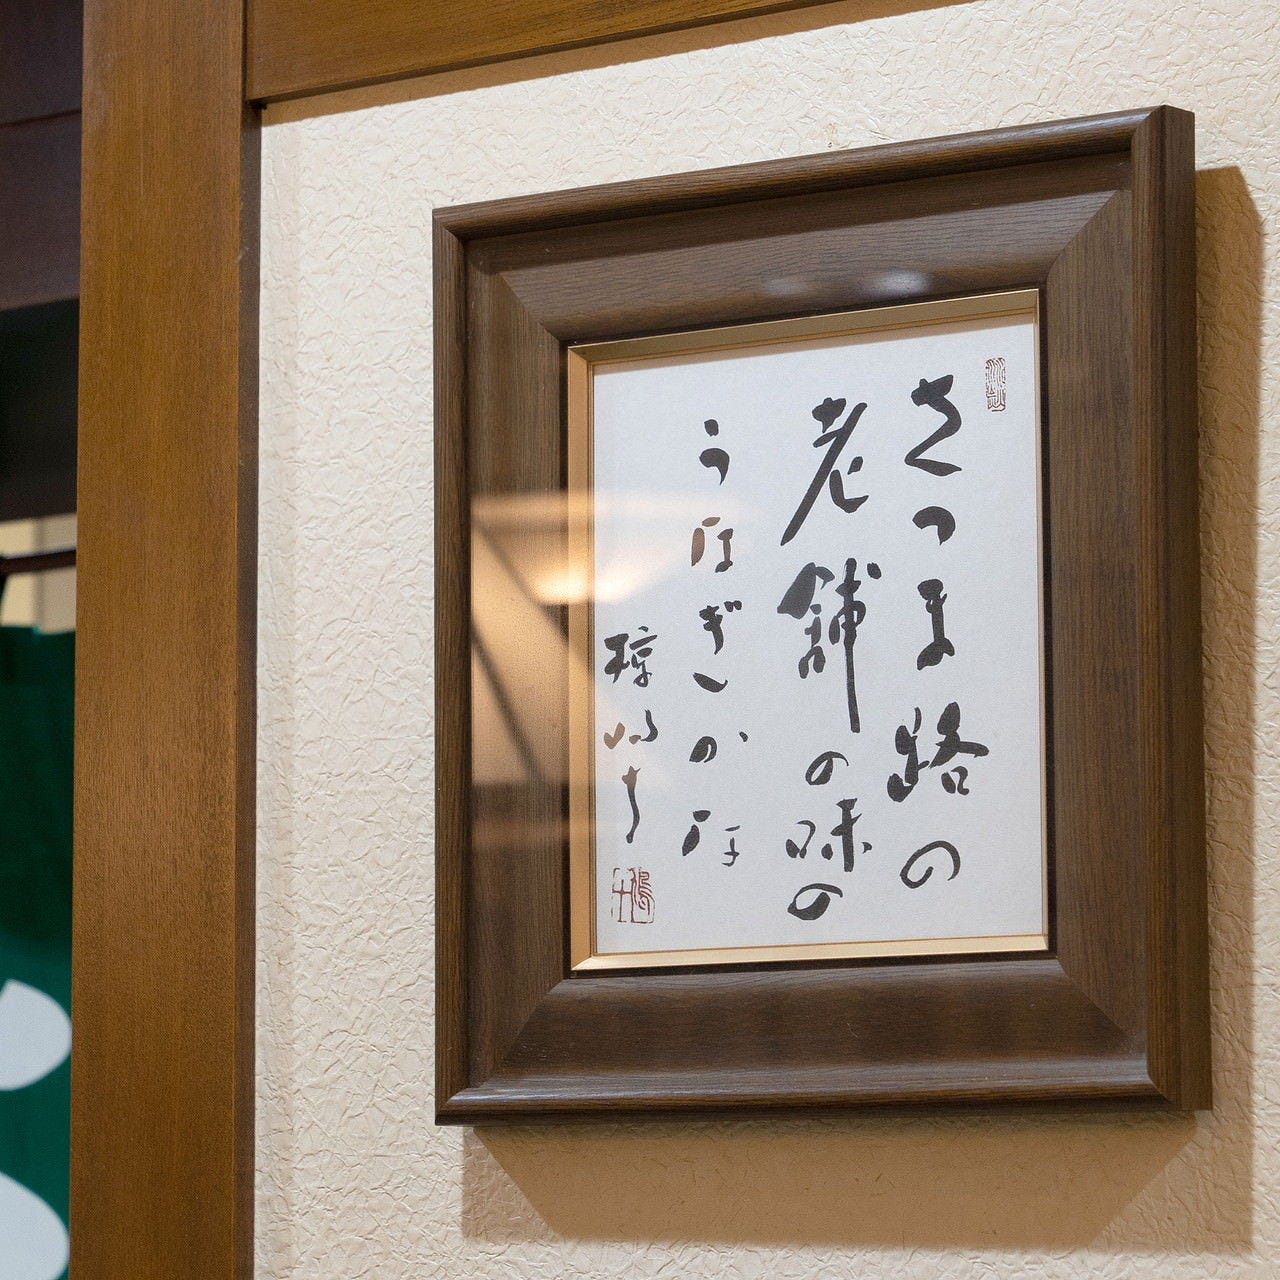 さつま路の
老舗の味の
うなぎかな